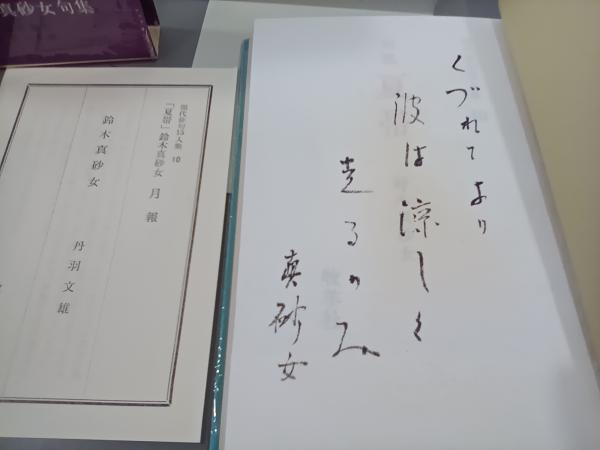 くづれてより
波は涼しく
走るのみ
真砂女
現代俳句15人集 10
「夏帯」鈴木真砂女 月報
鈴木真砂女
丹羽文雄
真砂女句集